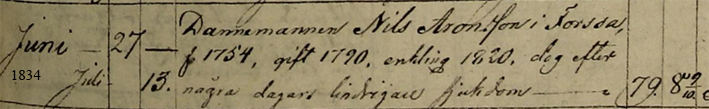 Juni — 27 — Dannemannen Nils Aronsson i Forssa,
f 1754, gift 1790, enkling 1820, dog efter
1834 Juli — 13. några dagars lindrigare sjukdom — 79. 8